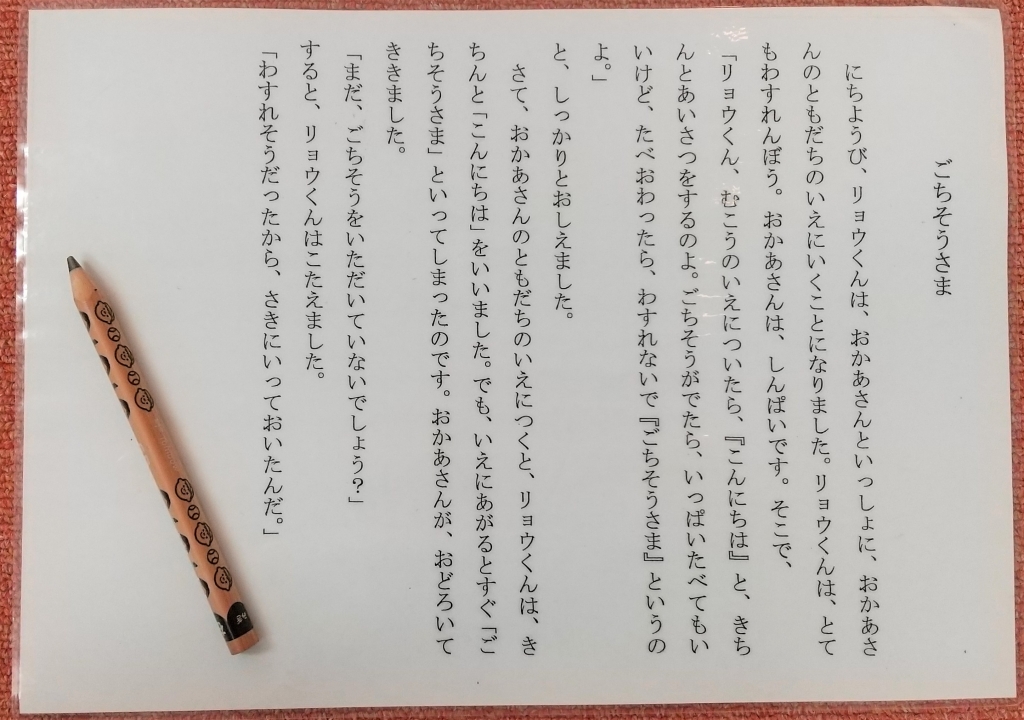 ごちそうさま
にちようび、リョウくんは、おかあさんといっしょに、おかあさ
んのともだちのいえにいくことになりました。リョウくんは、とて
もわすれんぼう。おかあさんは、しんぱいです。そこで、
「リョウくん、むこうのいえについたら、『こんにちは』と、きち
んとあいさつをするのよ。ごちそうがでたら、いっぱいたべてもい
いけど、たべおわったら、わすれないで『ごちそうさま』というの
よ。」
と、しっかりとおしえました。
さて、おかあさんのともだちのいえにつくと、リョウくんは、き
ちんと「こんにちは」をいいました。でも、いえにあがるとすぐ「ご
ちそうさま」といってしまったのです。おかあさんが、おどろいて
ききました。
「まだ、ごちそうをいただいていないでしょう？」
すると、リョウくんはこたえました。
「わすれそうだったから、さきにいっておいたんだ。」